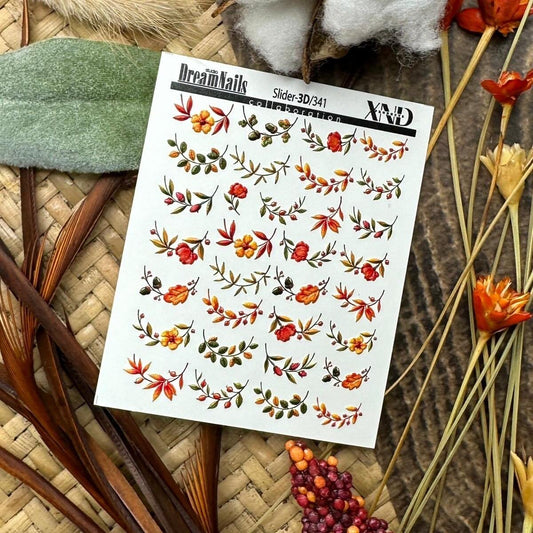 STUDIO
DreamNails
Slider-3D/341
collaboration
XND